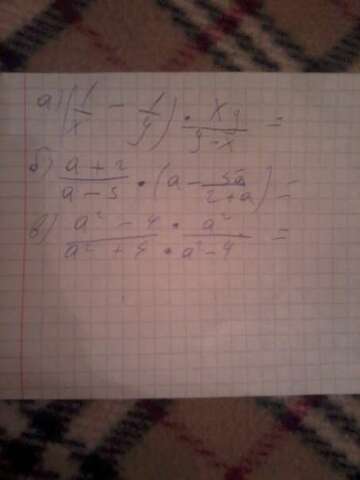 а) (1/x - 1/y) · xy/(y-x) =
б) (a+2)/(a-3) · (a - 5a/(2+a)) =
в) (a² - 4)/(a² + 4) · a²/(a² - 4) =